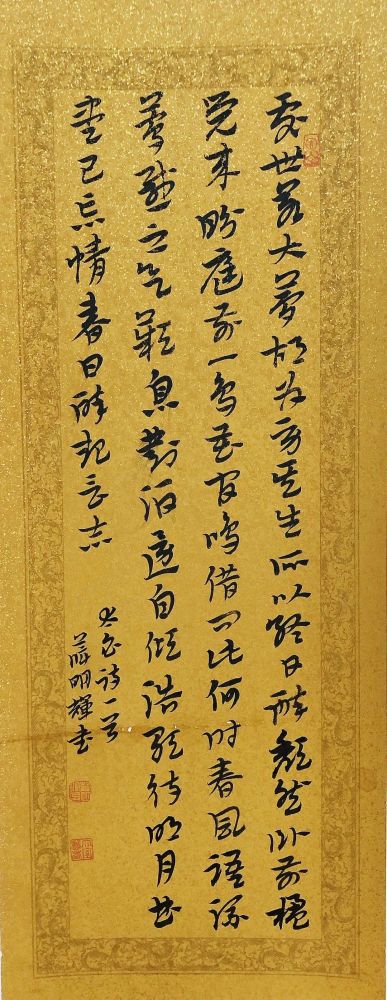 處世若大夢胡為勞其生所以終日醉頹然卧前楹
覺来盼庭前一鳥花间鳴借问此何时春風語流
鶯感之欲歎息對酒還自傾浩歌待明月曲
盡已忘情春日醉起言志
太白詩一首
明輝書